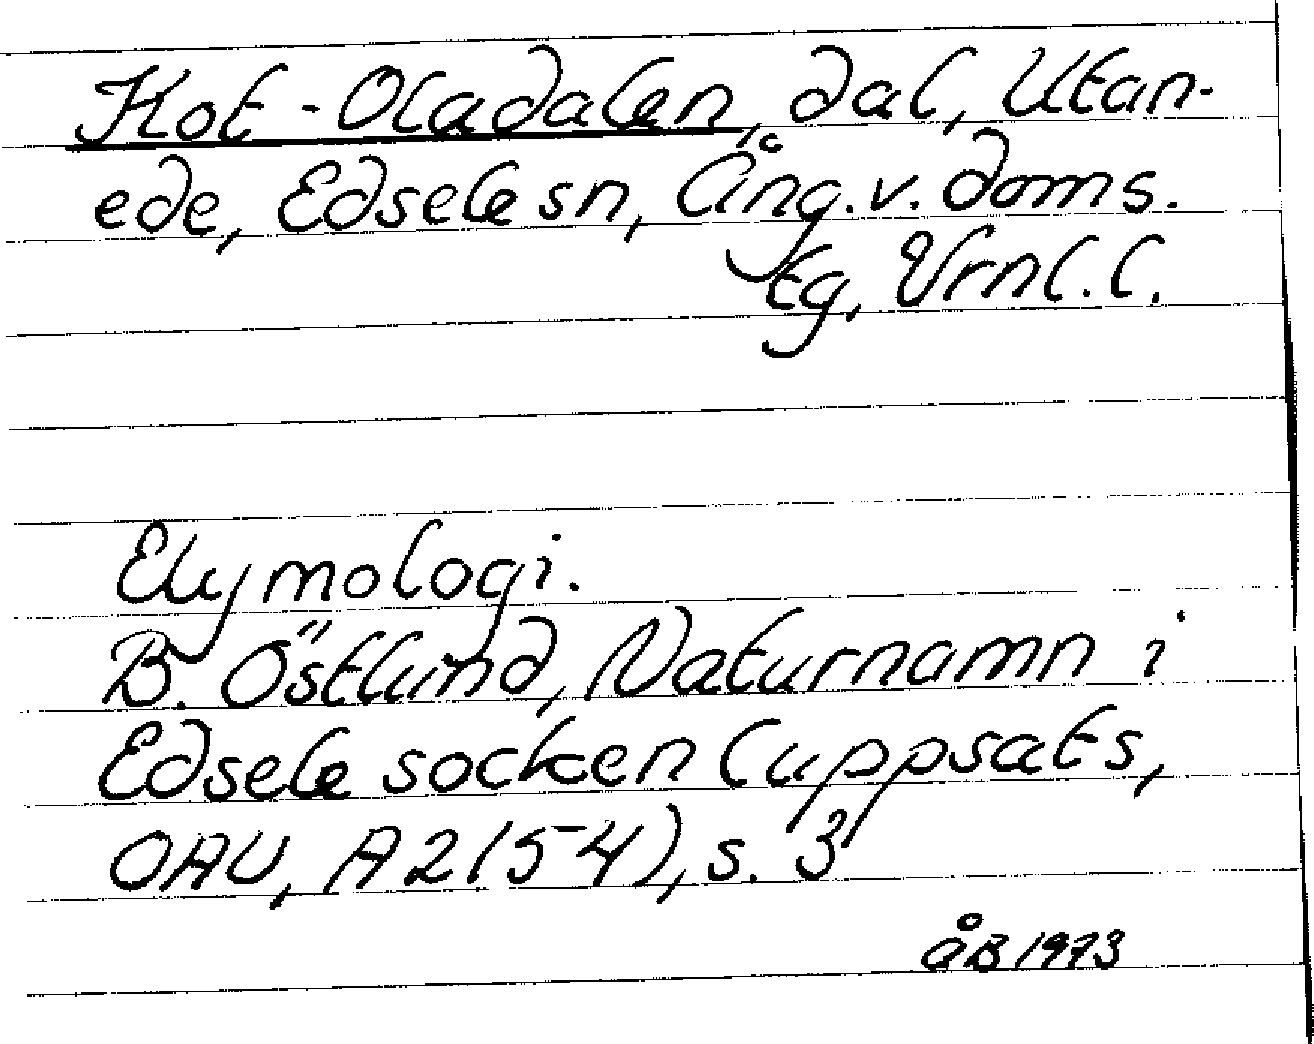 Kot-Oladalen, dal, Utan-
ede, Edsele sn, Ång. v. doms.
tg, Vrnl. l.
Etymologi.
B. Östlund, Naturnamn i
Edsele socken (uppsats,
OAU, A2154), s. 3
ÅB 1973